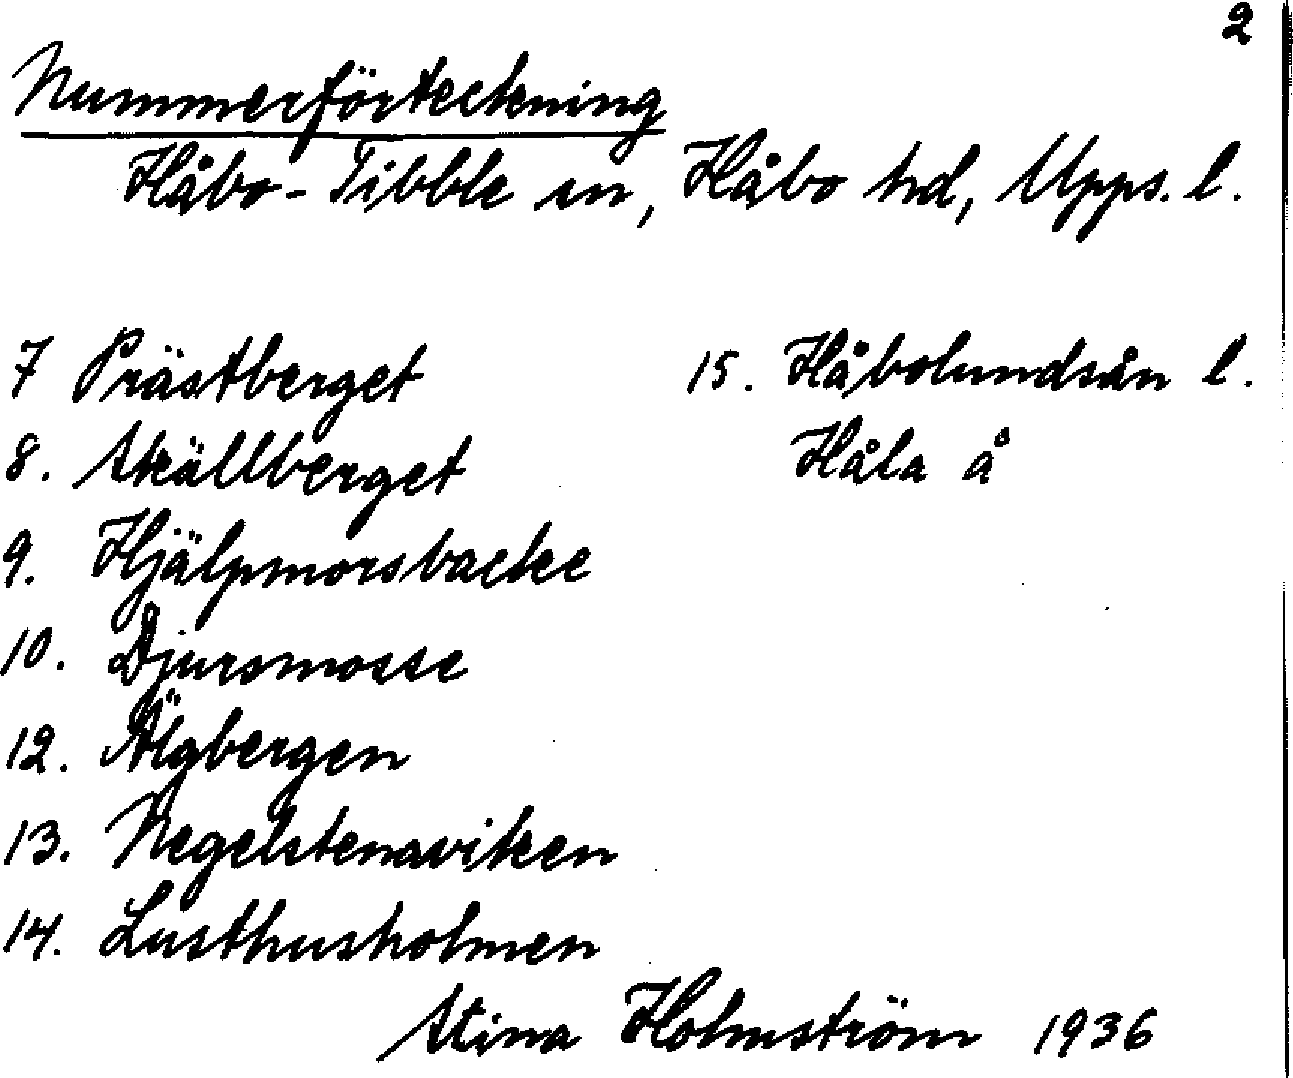 2
Nummerförteckning
Håbo-Tibble sn, Håbo hd, Upps. l.
7 Prästberget
8. Skällberget
9. Hjälpmorsbacke
10. Djursmosse
12. Älgbergen
13. Negelstenaviken
14. Lusthusholmen
15. Håbolundsån l.
Håla å
Stina Holmström 1936